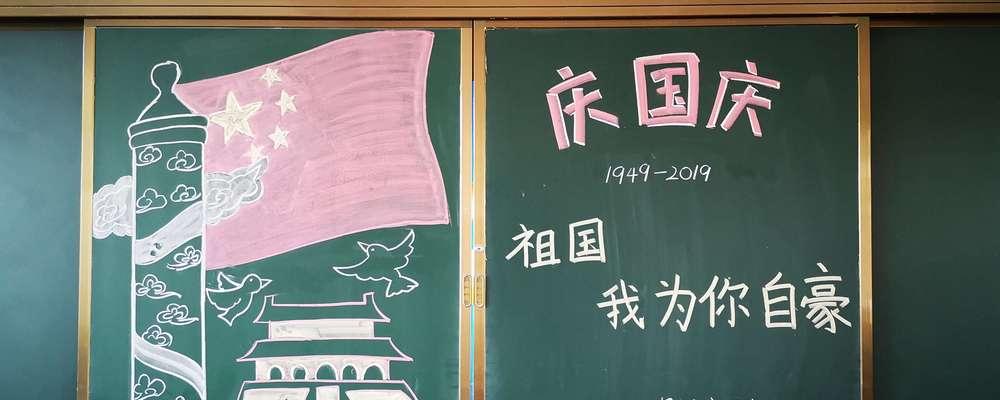 庆国庆
1949-2019
祖国
我为你自豪